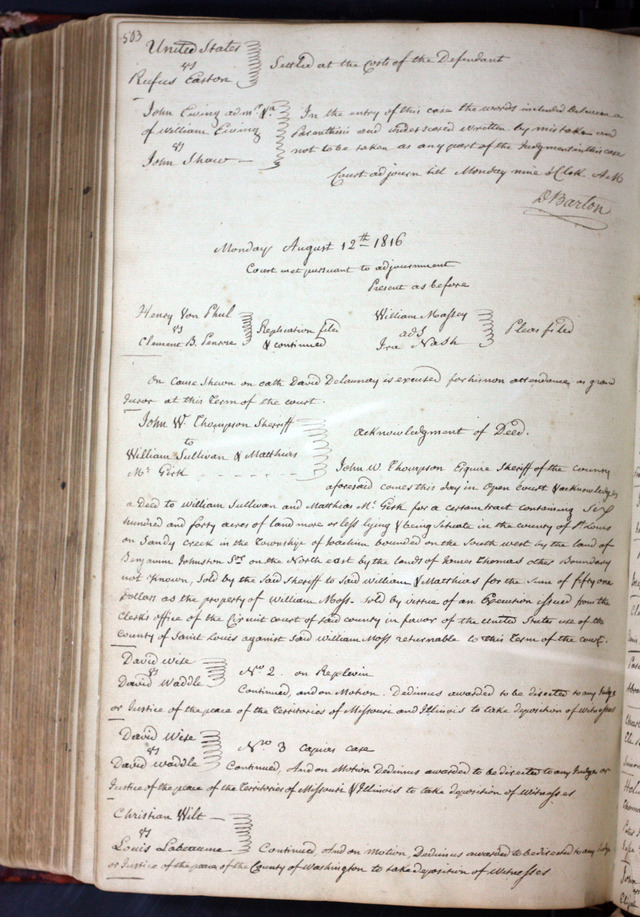 503
United States
vs
Rufus Easton
Settled at the Costs of the Defendant
John Ewing admr &c.
of William Ewing
vs
John Shaw
In the entry of this case the words included between a
Parenthesis and underscored written by mistake and
not to be taken as any part of the Judgment in this case
Court adjourn till Monday nine oClok A.M
D Barton
Monday August 12th 1816
Court met pursuant to adjournment
Present as before
Henry Von Phul
vs
Clement B. Penrose
Replication filed
& continued
William Massey
ads
Ira Nash
Pleas filed
On Cause Shewn on oath David Delaunay is excused for his non attendance as grand
Juror at this Term of the court.
John W. Thompson Sheriff
to
William Sullivan & Matthias
Mc Girk
acknowledgment of Deed.
John W. Thompson Esquire Sheriff of the county
aforesaid comes this day in Open Court & acknowledges
a Deed to William Sullivan and Matthias Mc Girk for a certain tract containing Six
hundred and forty acres of land more or less lying & being Situate in the county of St Louis
on Sandy creek in the Township of Joachim bounded on the South west by the land of
Benjamin Johnston Snr on the North east by the lands of James Thomas other Boundary
not Known, Sold by the Said Sheriff to Said William & Matthias for the Sum of fifty one
Dollars as the property of William Moss. Sold by virtue of an Execution issued from the
Clerks office of the Circuit court of Said county in favor of the United States use of the
County of Saint Louis against Said William Moss returnable to this Term of the court.
David Wise
vs
David Waddle
No 2. on Replevin
Continued, and on Motion. Dedimus awarded to be directed to any Judge
or Justice of the peace of the Territories of Missouri and Illinois to take deposition of Witnesses
David Wise
vs
David Waddle
No 3 capias case
Continued, And on Motion Dedimus awarded to be directed to any Judge or
Justice of the peace of the Territories of Missouri & Illinois to take deposition of Witnesses
Christian Wilt
vs
Louis Labeaume
Continued, And on Motion, Dedimus awarded to be directed to any Judge
or Justice of the peace of the County of Washington to take deposition of Witnesses